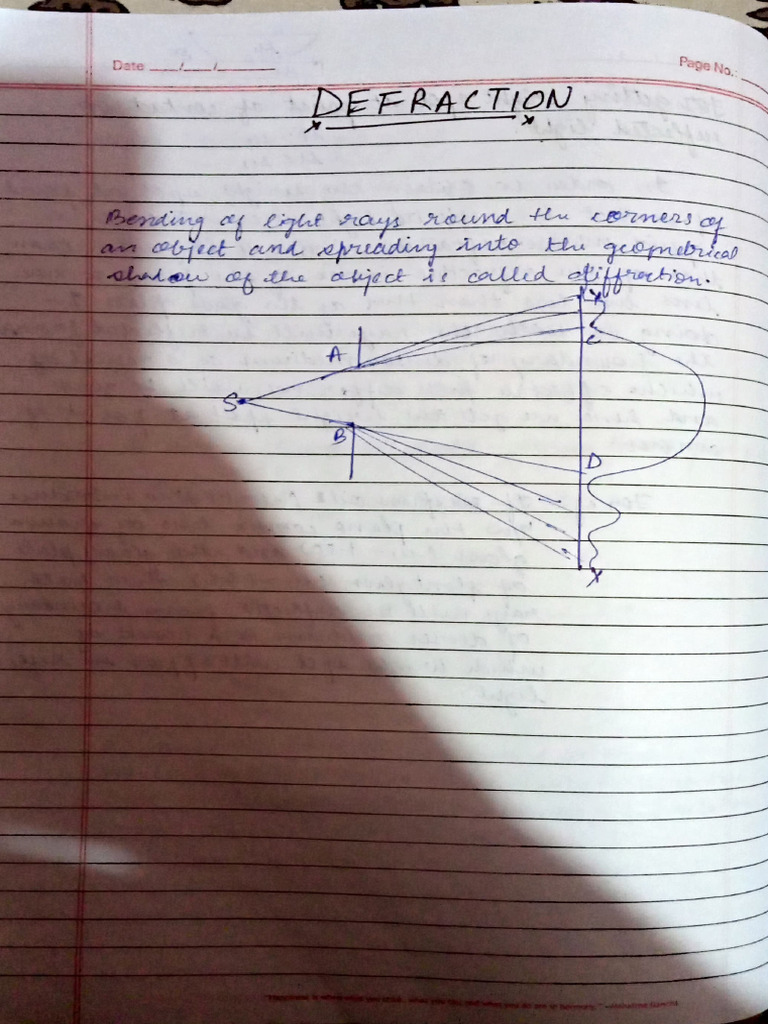 Date __/__/____
Page No.:
DEFRACTION
Bending of light rays round the corners of
an object and spreading into the geometrical
shadow of the object is called diffraction.
A
C
S
B
D
X